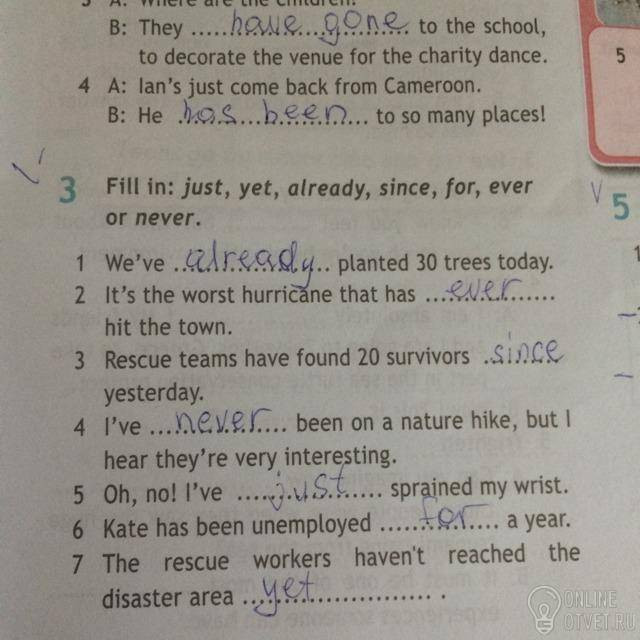 3 A: Where are the children?
B: They .....have...gone.. to the school,
to decorate the venue for the charity dance.
5
4 A: Ian's just come back from Cameroon.
B: He .has...been... to so many places!
3 Fill in: just, yet, already, since, for, ever
or never.
5
1 We've ..already.. planted 30 trees today.
2 It's the worst hurricane that has ...ever.......
hit the town.
3 Rescue teams have found 20 survivors .since
yesterday.
4 I've ...never... been on a nature hike, but I
hear they're very interesting.
5 Oh, no! I've ....just..... sprained my wrist.
6 Kate has been unemployed .....for.... a year.
7 The rescue workers haven't reached the
disaster area ..yet...................... .
ONLINE
OTVET.RU